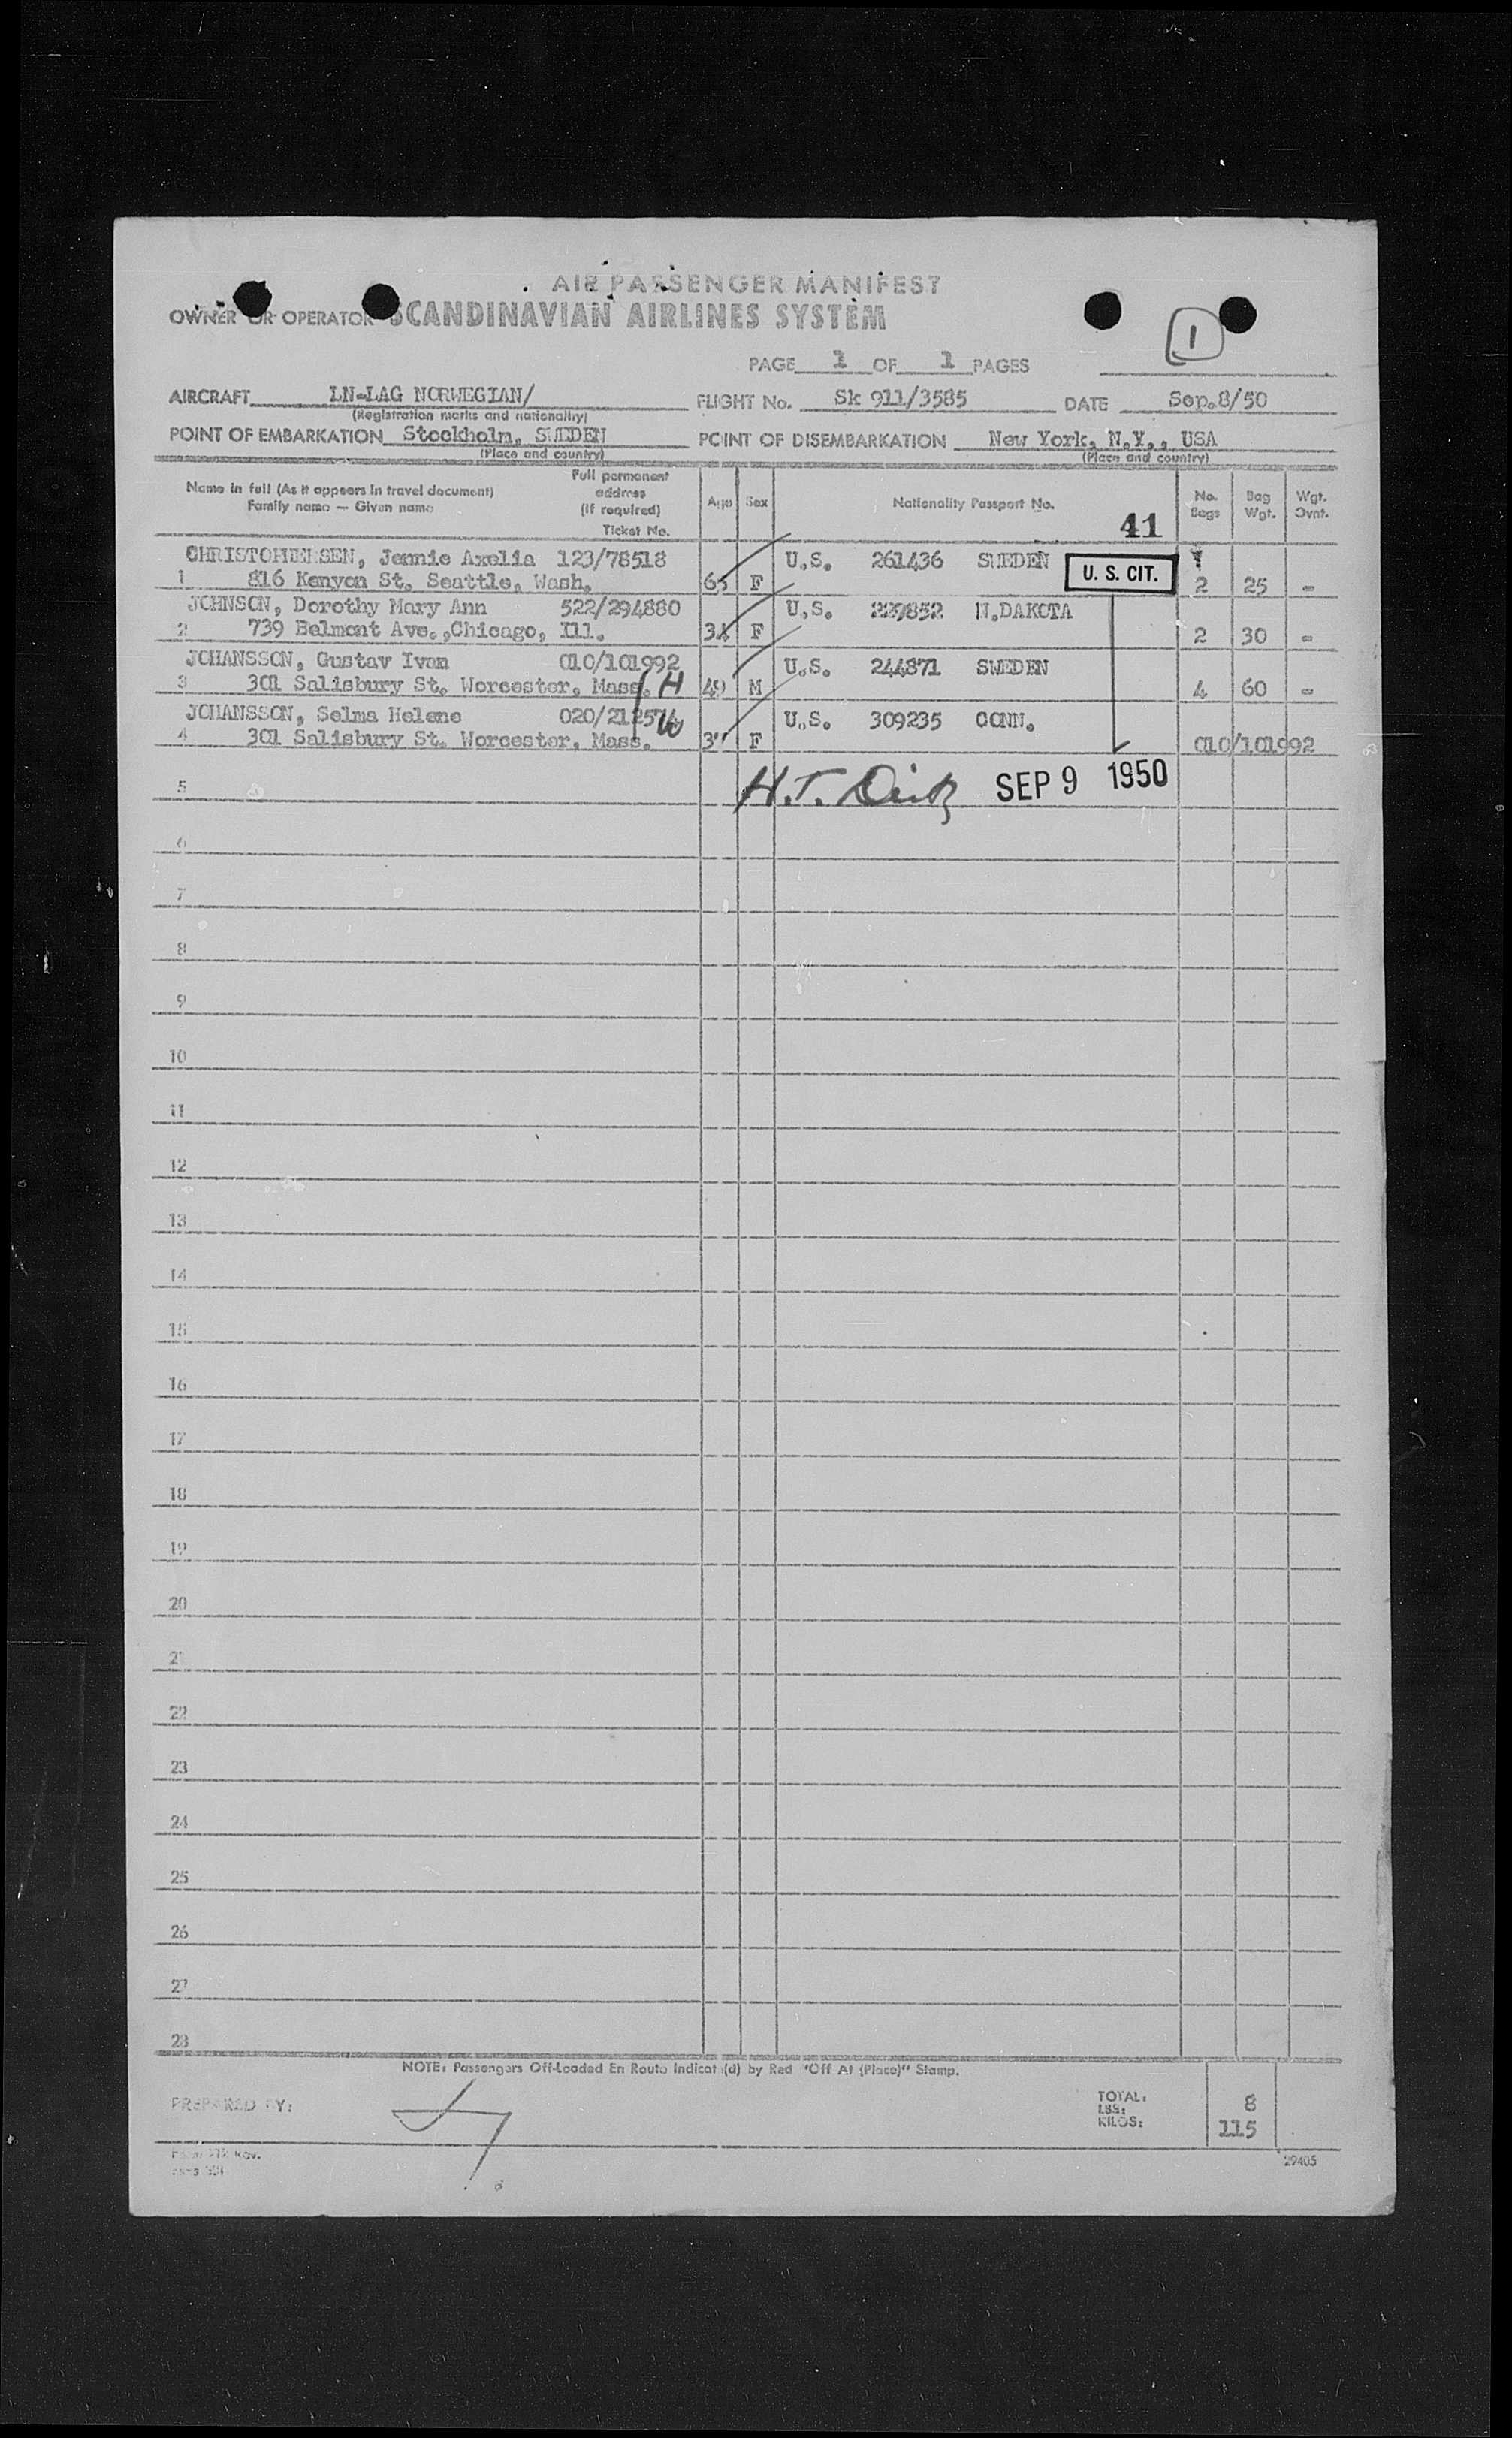 AIR PASSENGER MANIFEST
OWNER OR OPERATOR SCANDINAVIAN AIRLINES SYSTEM
1
PAGE 1 OF 1 PAGES
AIRCRAFT LN-LAG NORWEGIAN/ FLIGHT No. Sk 911/3585 DATE Sep.8/50
(Registration marks and nationality)
POINT OF EMBARKATION Stockholm, SWEDEN POINT OF DISEMBARKATION New York, N.Y., USA
(Place and country) (Place and country)
Name in full (As it appears in travel document) Family name — Given name
Full permanent address (If required) Ticket No.
Age Sex Nationality Passport No. No. Bags Bag Wgt. Wgt. Ovnt.
41
CHRISTOPHERSEN, Jennie Axelia 123/78518 U.S. 261436 SWEDEN U. S. CIT.
1 816 Kenyon St. Seattle, Wash. F 2 25 -
JOHNSON, Dorothy Mary Ann 522/294880 U.S. 229852 N.DAKOTA
2 739 Belmont Ave.,Chicago, Ill. 34 F 2 30 -
JOHANSSON, Gustav Ivan 010/101992 U.S. 244871 SWEDEN
3 301 Salisbury St. Worcester, Mass. H 49 M 4 60 -
JOHANSSON, Selma Helene U.S. 309235 CONN.
4 301 Salisbury St. Worcester, Mass. W F 010/101992
5 SEP 9 1950
6
7
8
9
10
11
12
13
14
15
16
17
18
19
20
21
22
23
24
25
26
27
28
NOTE: Passengers Off-Loaded En Route Indicat(d) by Red "Off At (Place)" Stamp.
PREPARED BY:
TOTAL: 8
LBS:
KILOS: 115
29405